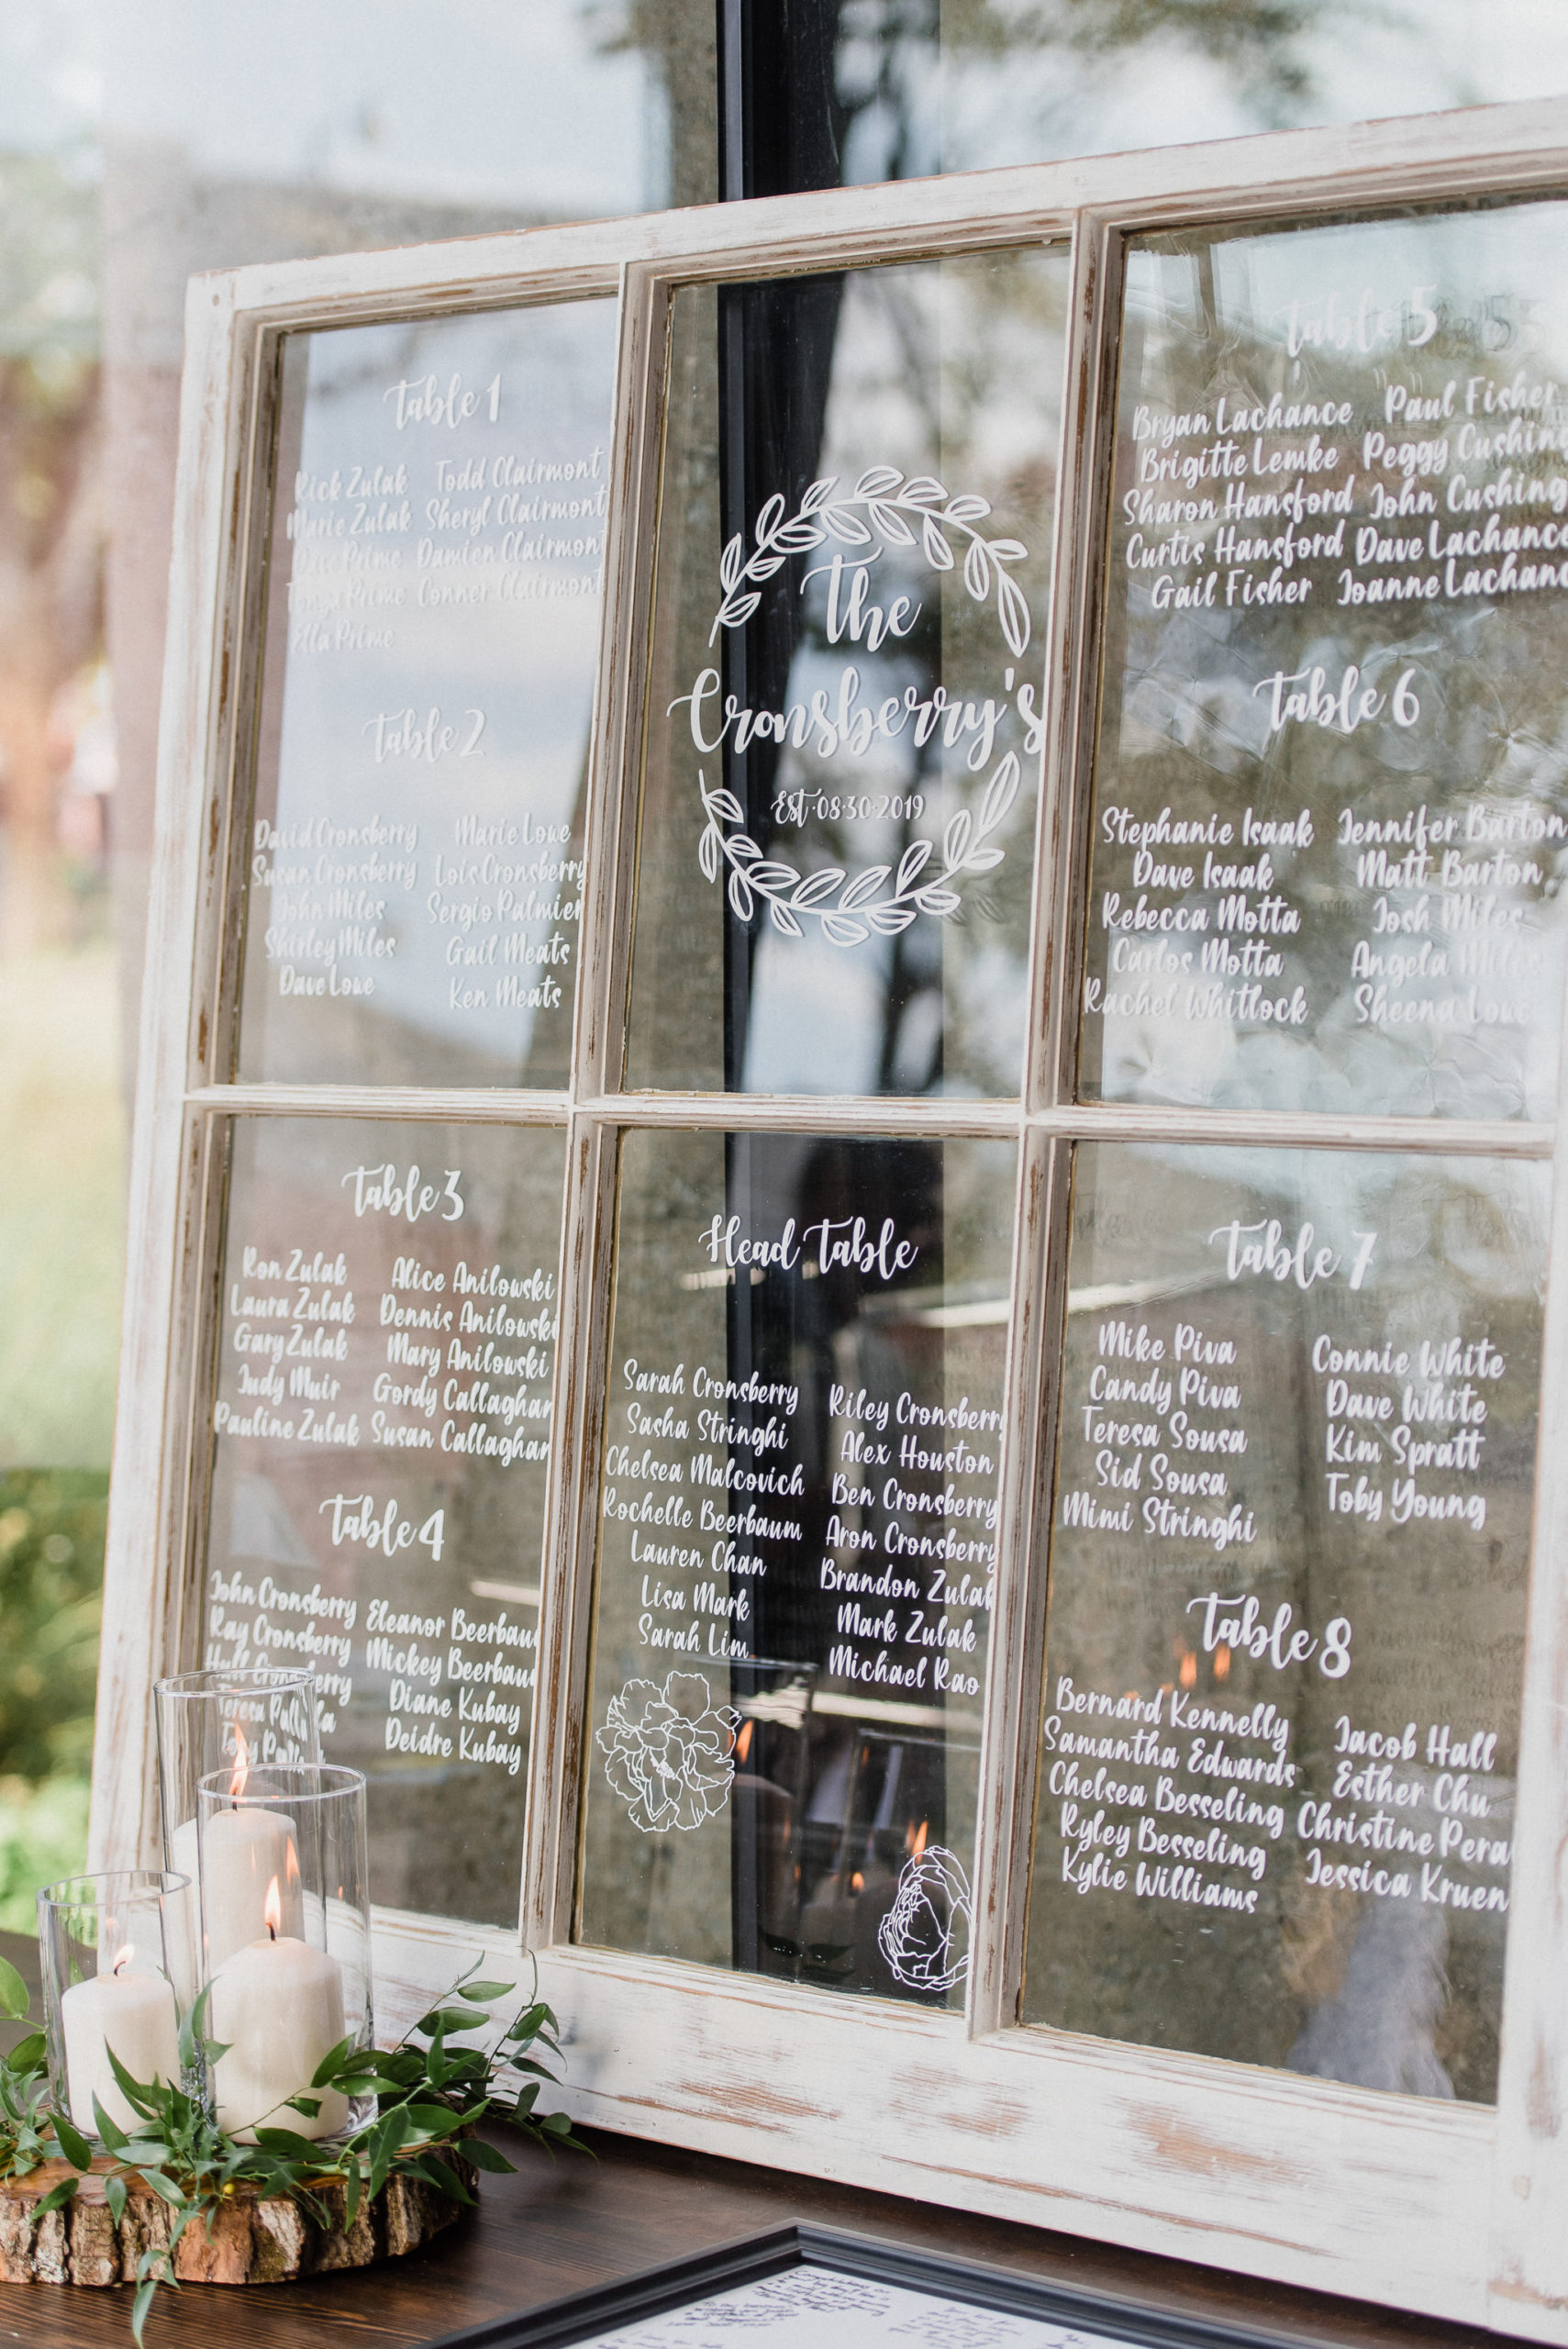 Table 1
Rick Zulak Todd Clairmont
Marie Zulak Sheryl Clairmont
Prime Damien Clairmont
Tonya Prime Conner Clairmont
Ella Prime
Table 2
David Cronsberry Marie Lowe
Susan Cronsberry Lois Cronsberry
John Miles Sergio Palmier
Shirley Miles Gail Meats
Dave Lowe Ken Meats
The
Cronsberry's
Est·08·30·2019
Table 5
Bryan Lachance Paul Fisher
Brigitte Lemke Peggy Cushin
Sharon Hansford John Cushing
Curtis Hansford Dave Lachance
Gail Fisher Joanne Lachanc
Table 6
Stephanie Isaak Jennifer Barton
Dave Isaak Matt Barton
Rebecca Motta Josh Miles
Carlos Motta Angela Miles
Rachel Whitlock Sheena Lowe
Table 3
Ron Zulak Alice Anilowski
Laura Zulak Dennis Anilowski
Gary Zulak Mary Anilowski
Judy Muir Gordy Callaghan
Pauline Zulak Susan Callaghan
Table 4
John Cronsberry Eleanor Beerbau
Ray Cronsberry Mickey Beerbau
Cronsberry Diane Kubay
Teresa Deidre Kubay
Tony
Head Table
Sarah Cronsberry Riley Cronsberry
Sasha Stringhi Alex Houston
Chelsea Malcovich Ben Cronsberry
Rochelle Beerbaum Aron Cronsberry
Lauren Chan Brandon Zulak
Lisa Mark Mark Zulak
Sarah Lim Michael Rao
Table 7
Mike Piva Connie White
Candy Piva Dave White
Teresa Sousa Kim Spratt
Sid Sousa Toby Young
Mimi Stringhi
Table 8
Bernard Kennelly Jacob Hall
Samantha Edwards Esther Chu
Chelsea Besseling Christine Pera
Ryley Besseling Jessica Kruen
Kylie Williams